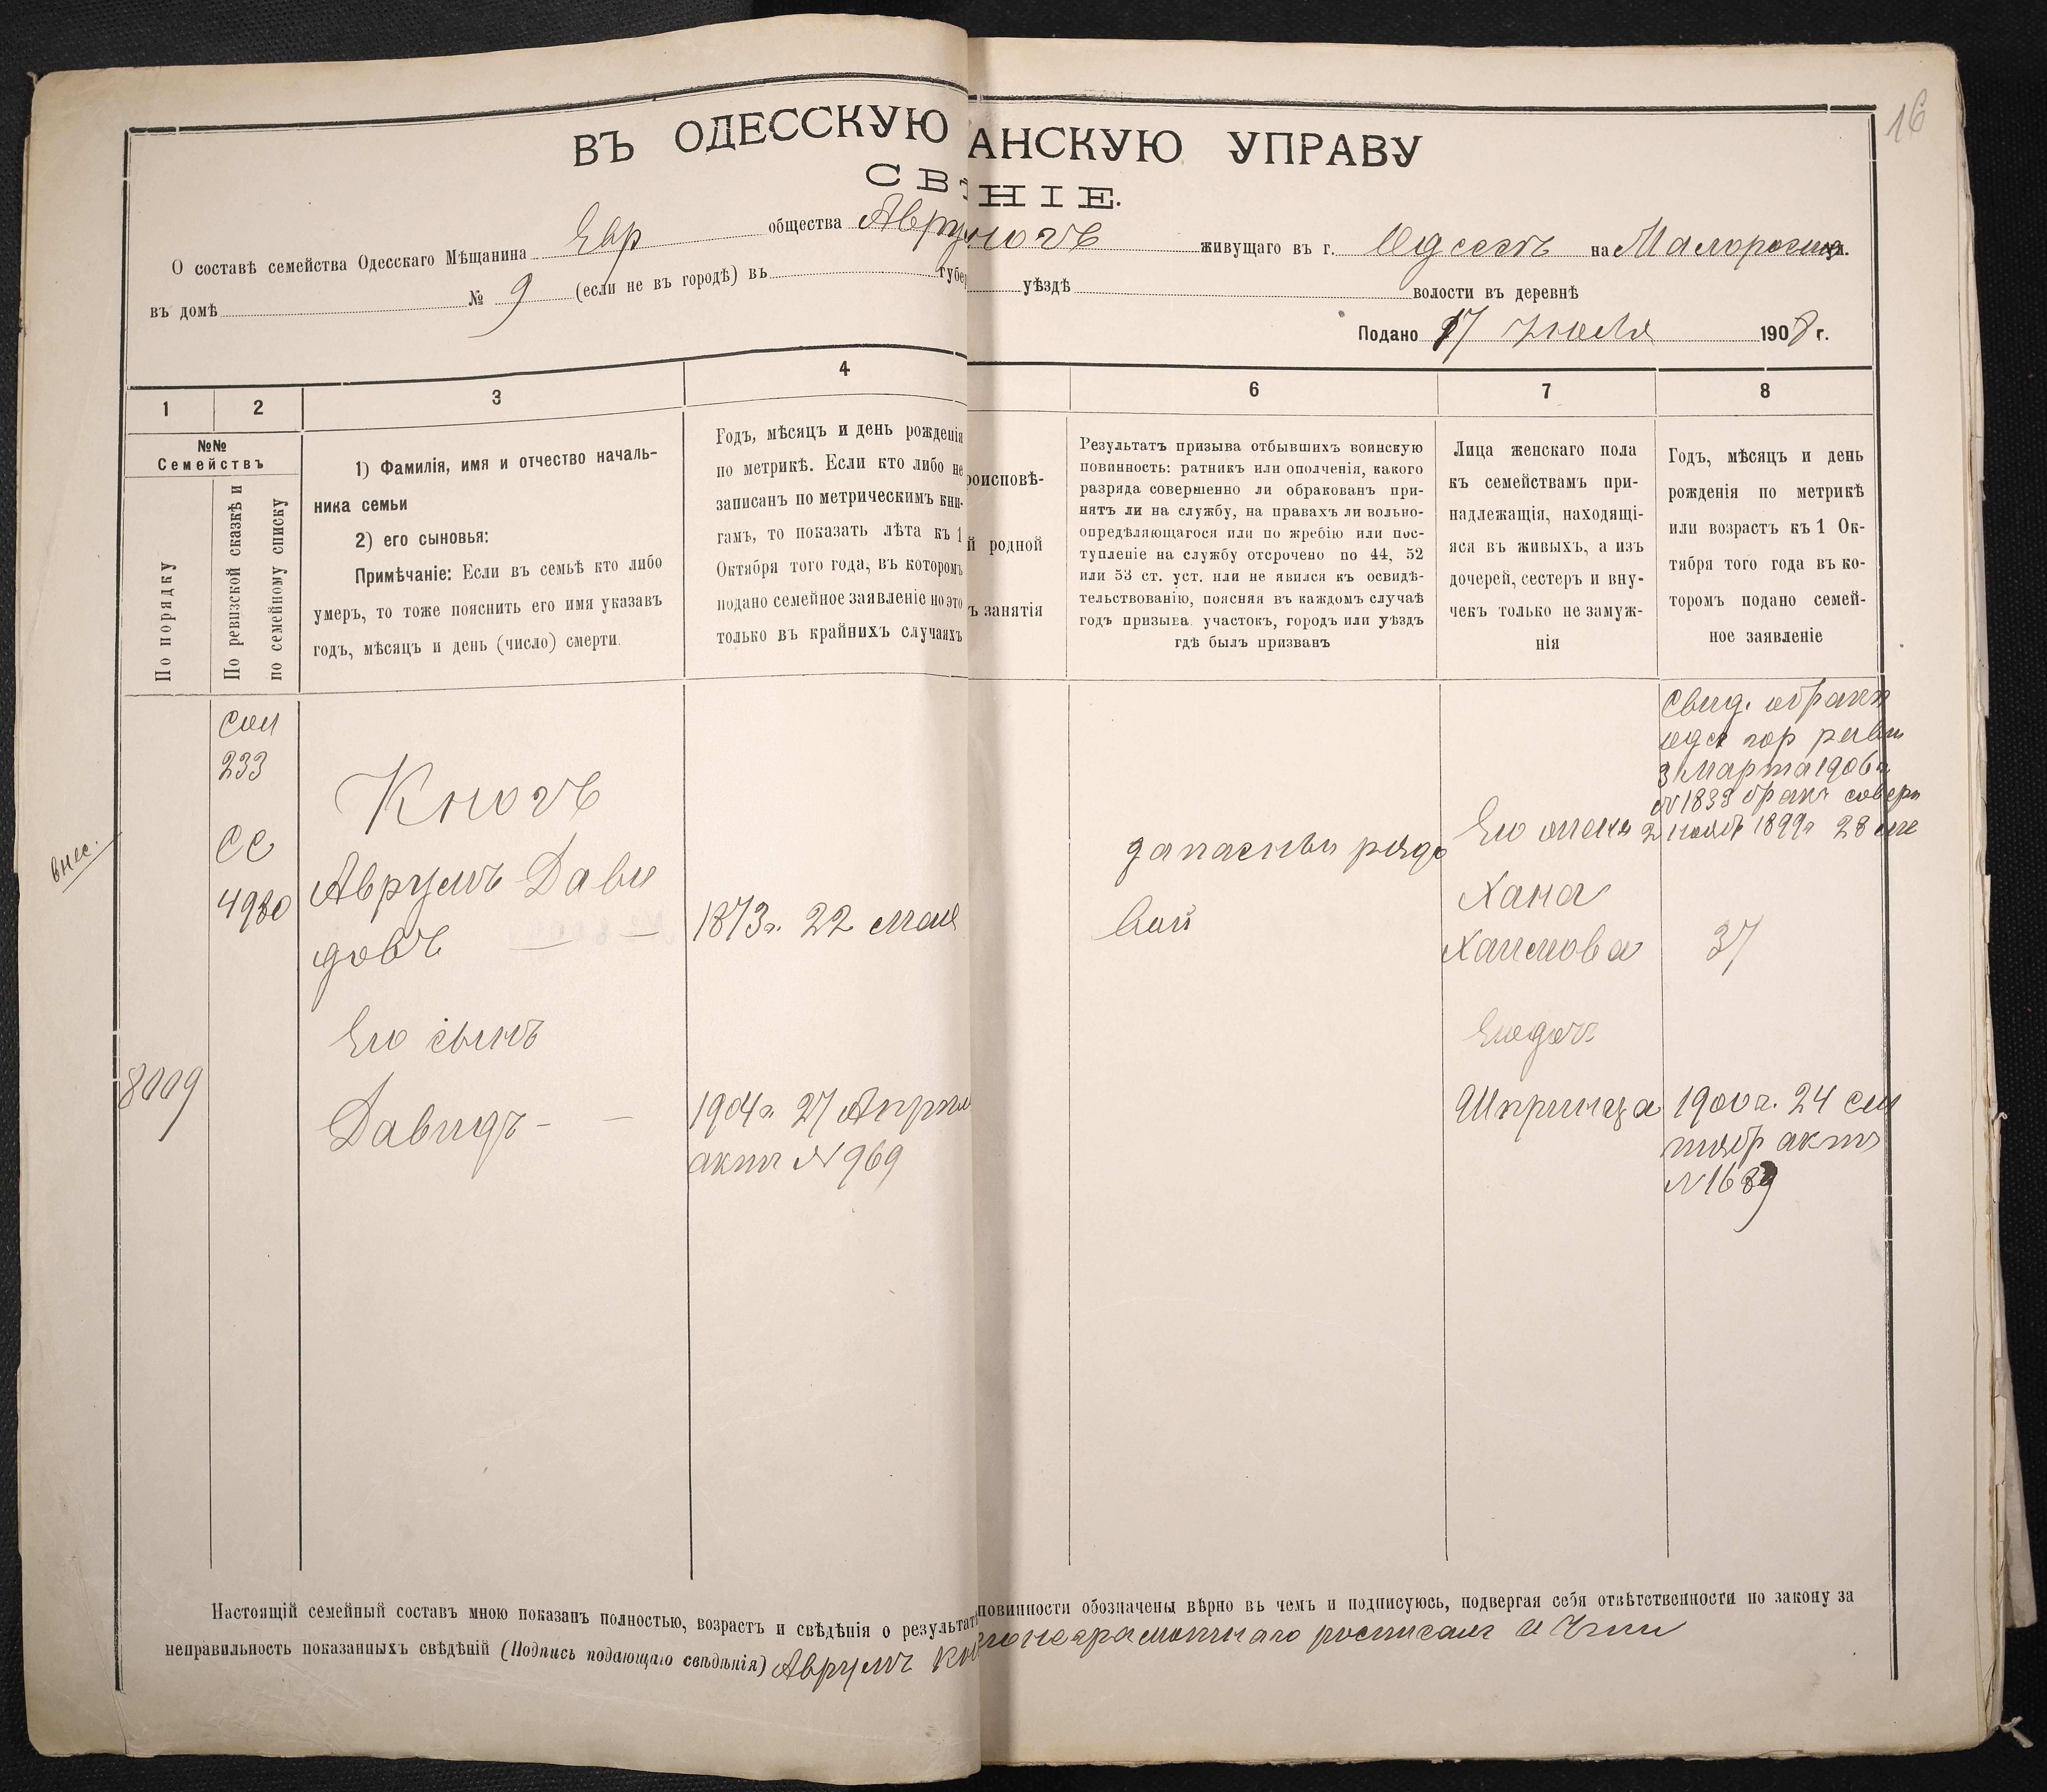 16
ВЪ ОДЕССКУЮ АНСКУЮ УПРАВУ
СВѢ НІЕ.
О составѣ семейства Одесскаго Мѣщанина Евр общества Авру живущаго въ г. Одессѣ на
въ домѣ № 9 (если не въ городѣ) въ губе уѣздѣ волости въ деревнѣ
Подано 17 Июля 1908 г.
1 2 3 4 6 7 8
№№
Семействъ
По порядку
По ревизской сказкѣ и
по семейному списку
1) Фамилія, имя и отчество началь-
ника семьи
2) его сыновья:
Примѣчаніе: Если въ семьѣ кто либо
умеръ, то тоже пояснить его имя указавъ
годъ, мѣсяцъ и день (число) смерти.
Годъ, мѣсяцъ и день рожденія
по метрикѣ. Если кто либо не
записанъ по метрическимъ кни-
гамъ, то показать лѣта къ 1
Октября того года, въ которомъ
подано семейное заявленіе но это
только въ крайнихъ случаяхъ
роисповѣ-
й родной
ъ занятія
Результатъ призыва отбывшихъ воинскую
повинность: ратникъ или ополченія, какого
разряда совершенно ли обракованъ при-
нятъ ли на службу, на правахъ ли вольно-
опредѣляющагося или по жребію или пос-
тупленіе на службу отсрочено по 44, 52
или 53 ст. уст. или не явился къ освидѣ-
тельствованію, поясняя въ каждомъ случаѣ
годъ призыва. участокъ, городъ или уѣздъ
гдѣ былъ призванъ
Лица женскаго пола
къ семействамъ при-
надлежащія, находящі-
яся въ живыхъ, а изъ
дочерей, сестеръ и вну-
чекъ только не замуж-
нія
Годъ, мѣсяцъ и день
рожденія по метрикѣ
или возрастъ къ 1 Ок-
тября того года въ ко-
торомъ подано семей-
ное заявленіе
внес.
8009
233
СС
4980
Кногъ
Аврумъ Дави
довъ
1873г. 22 мая
Его сынъ
Давидъ
1904г. 27 Апрѣл
актъ № 969
запасный рядо
вой
Его жена
Хана
Хаимова
Его доч
Шпринца
Свид. о брак
одес гор равви
3 Марта 1906г
№ 1833 бракъ соверш
2 нояб 1899г 28 лѣт
37
1900г. 24 сен
тябр актъ
Настоящій семейный составъ мною показанъ полностью, возрастъ и свѣдѣнія о результатѣ повинности обозначены вѣрно въ чемъ и подписуюсь, подвергая себя отвѣтственности по закону за
неправильность показанныхъ свѣдѣній (Подпись подающаго свѣдѣнія) Аврумъ